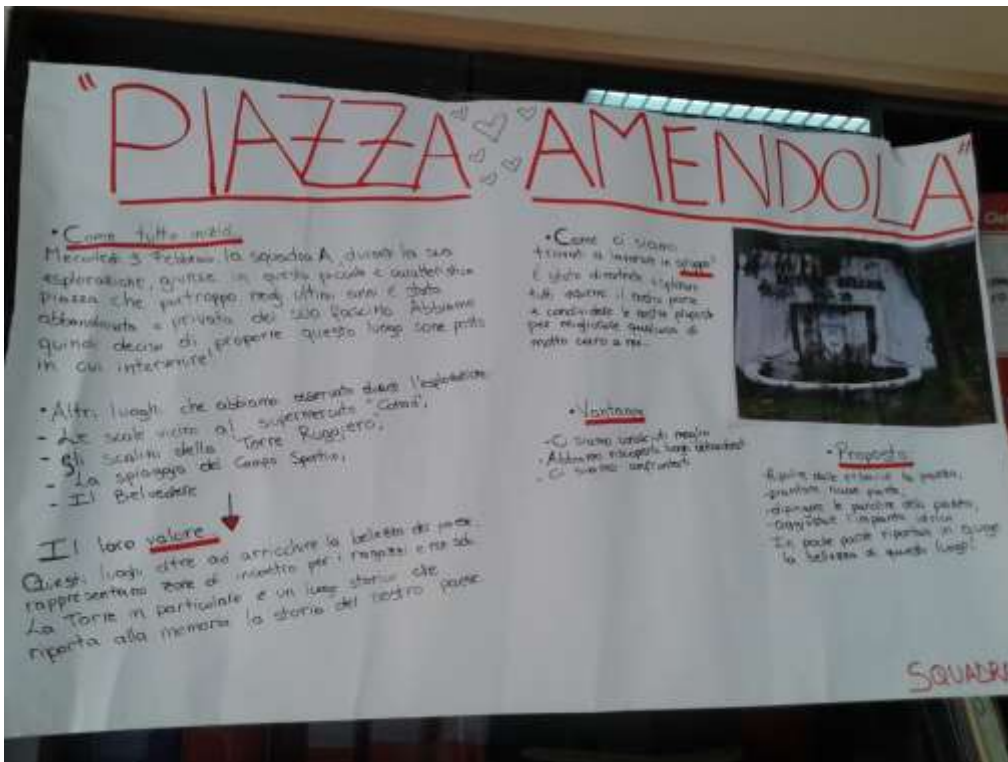 "PIAZZA AMENDOLA"
• Come tutto iniziò
Mercoledì 3 Febbraio la squadra A, durante la sua
esplorazione, giunse in questa piccola e caratteristica
piazza che purtroppo negli ultimi anni è stata
abbandonata e privata del suo fascino. Abbiamo
quindi deciso di proporre questo luogo come posto
in cui intervenire!
• Altri luoghi che abbiamo osservato durante l'esplorazione
- Le scale vicino al supermercato "Conad";
- Gli scalini della Torre Ruggiero;
- La spiaggia del Campo Sportivo;
- Il Belvedere
Il loro valore
Questi luoghi oltre ad arricchire la bellezza del paese
rappresentano zone di incontro per i ragazzi e non solo
La Torre in particolare è un luogo storico che
riporta alla memoria la storia del nostro paese
• Come ci siamo
trovati a lavorare in gruppo?
È stato divertente esplorare
tutti insieme il nostro paese
e condividere le nostre proposte
per migliorare qualcosa di
molto caro a noi...
• Vantaggi
- Ci siamo conosciuti meglio
- Abbiamo riscoperto luoghi
- Ci siamo confrontati
• Proposta:
- Ripulire dalle erbacce la piazza,
- piantare nuove piante,
- dipingere le panchine della piazza,
- aggiustare l'impianto idrico
In poche parole riportare in auge
la bellezza di questo luogo!
SQUADRA